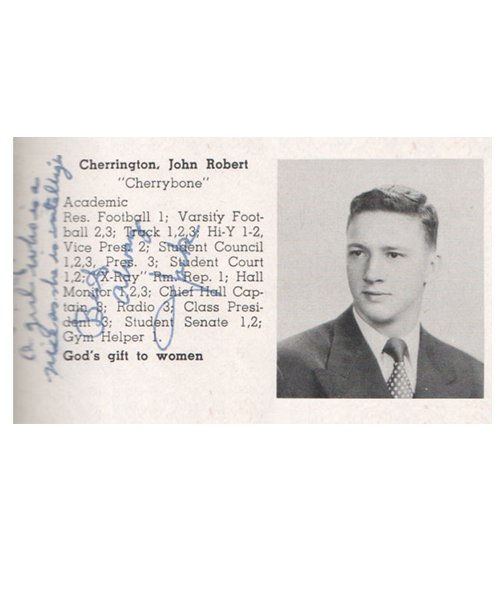 Cherrington, John Robert
"Cherrybone"
Academic
Res. Football 1; Varsity Foot-
ball 2,3; Track 1,2,3; Hi-Y 1-2,
Vice Pres. 2; Student Council
1,2,3, Pres. 3; Student Court
1,2; "X-Ray" Rm. Rep. 1; Hall
Monitor 2,3; Chief Hall Cap-
tain 3; Radio Class Presi-
dent 3; Student Senate 1,2;
Gym Helper 1.
God's gift to women
A girl who is as
nice as she is intelligent
Best
always
Jack